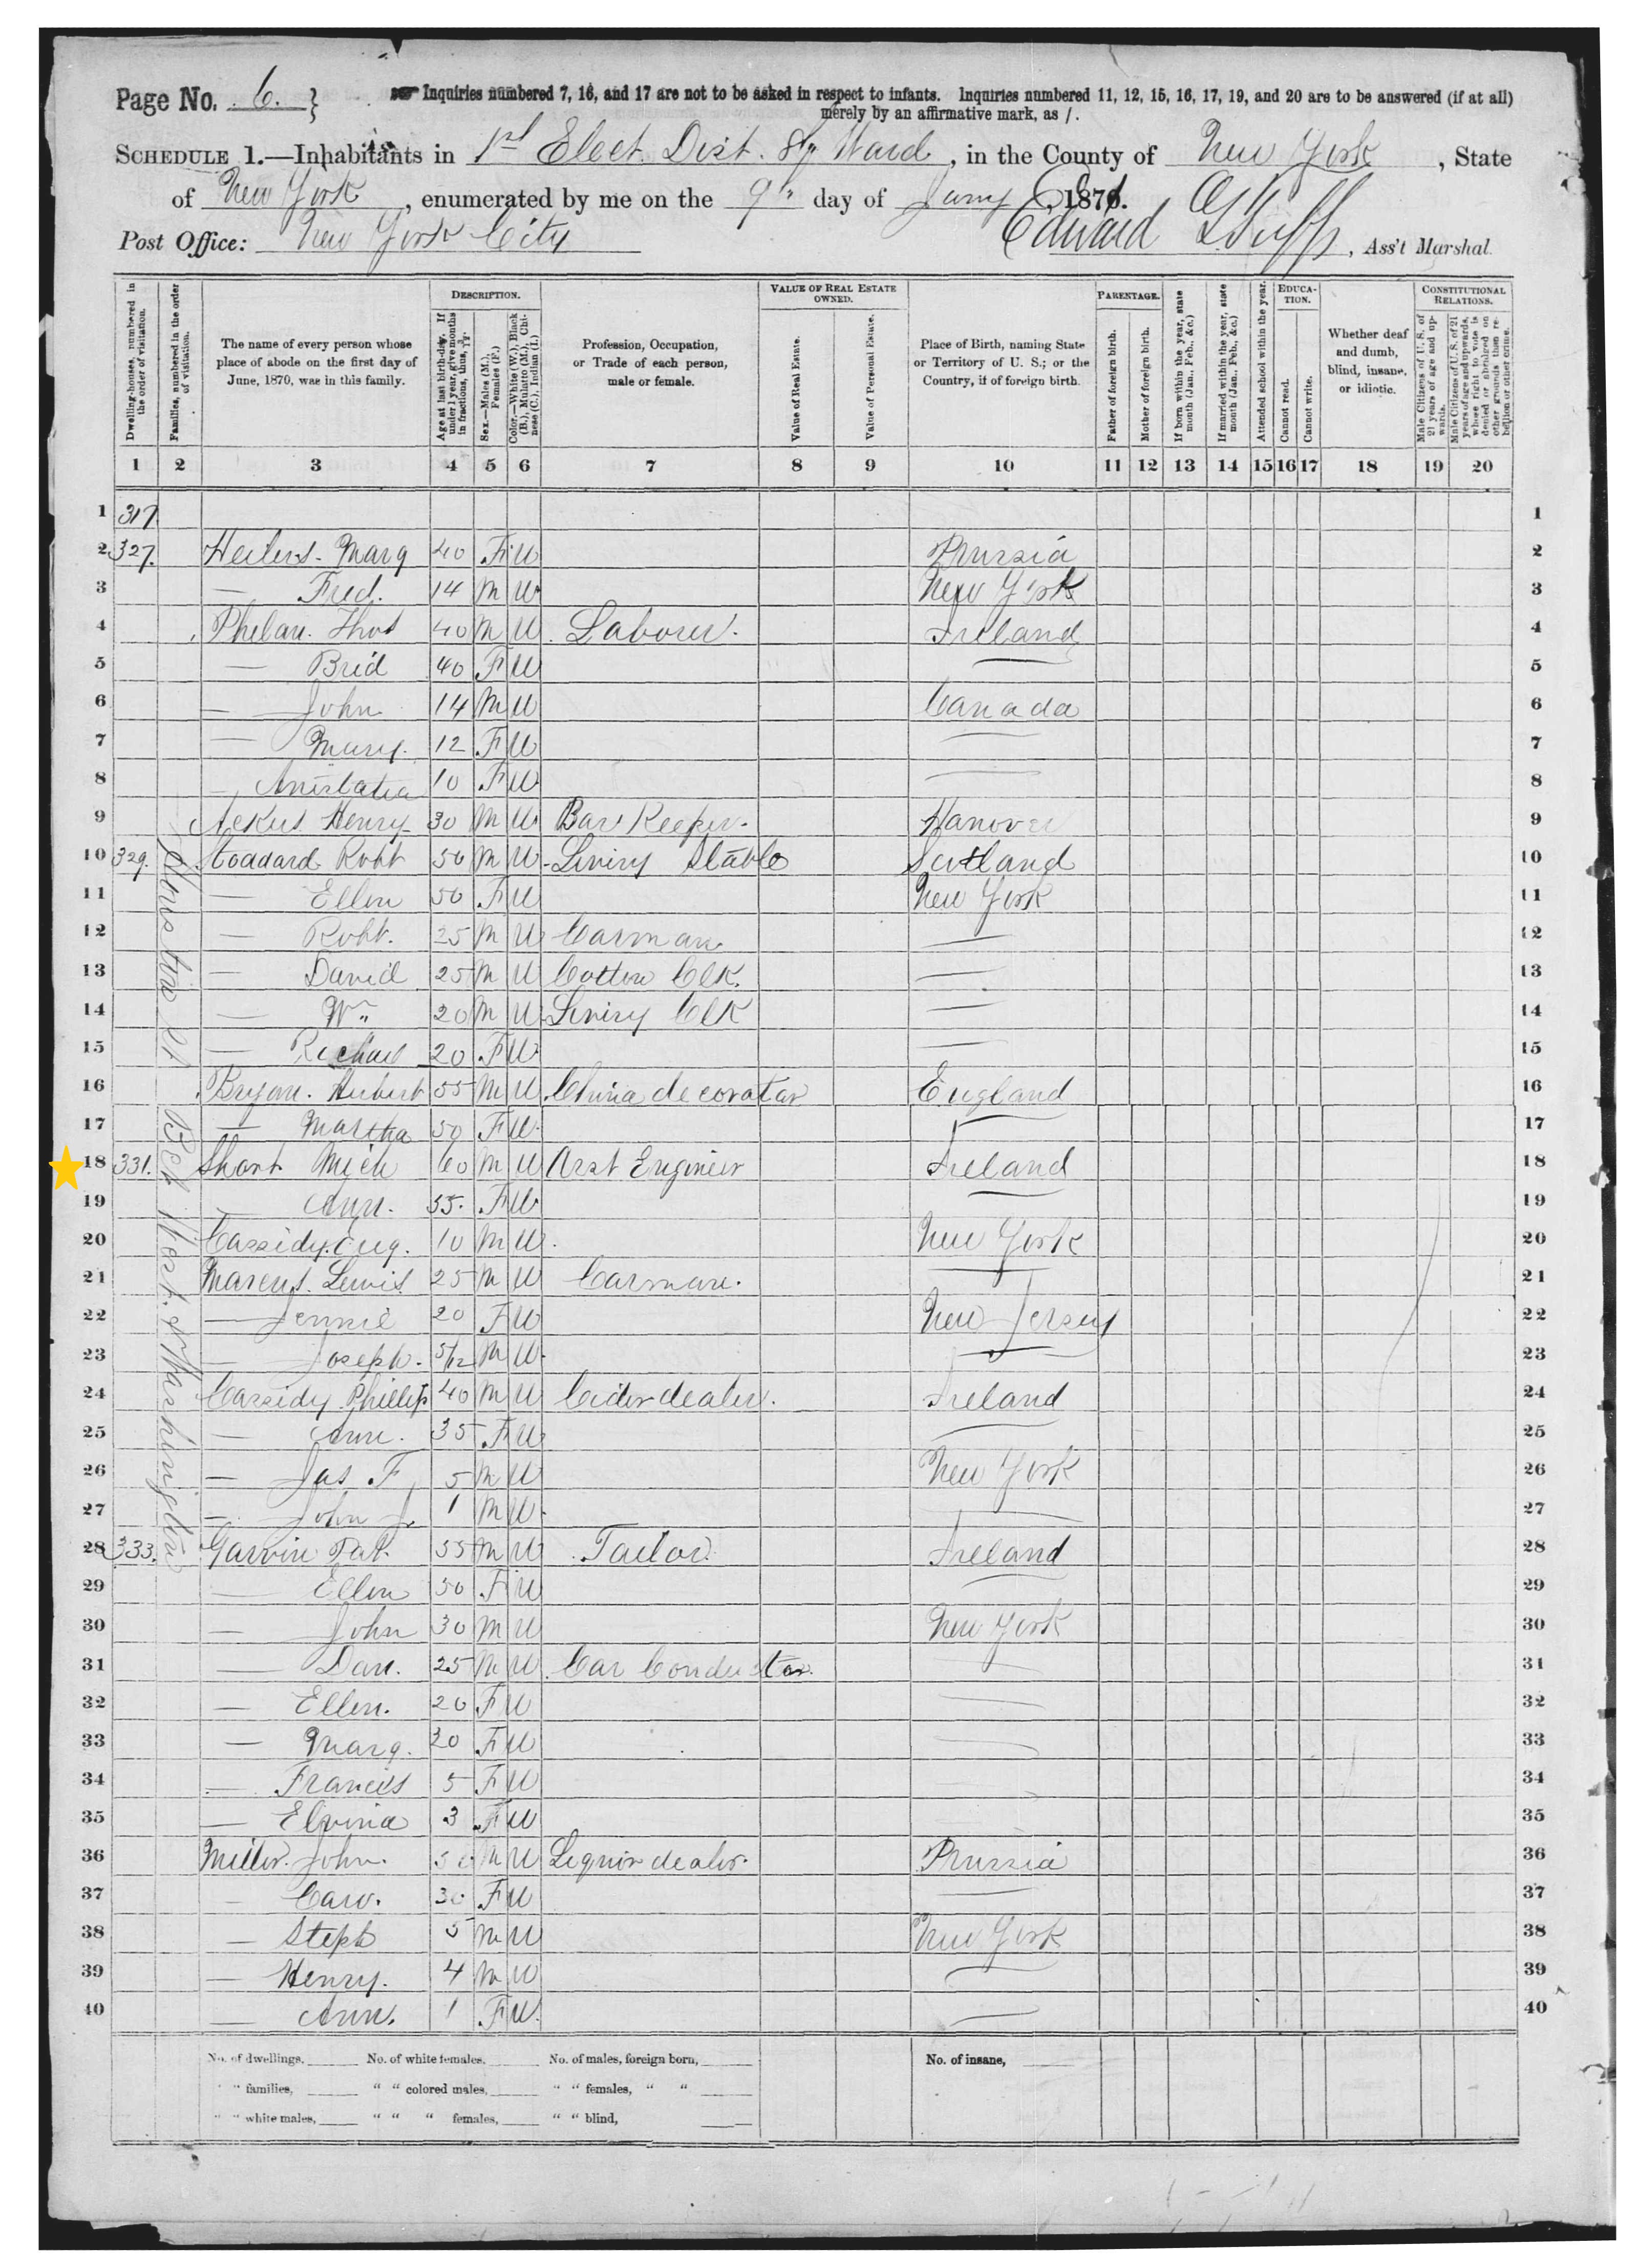 Page No. 6. } Inquiries numbered 7, 16, and 17 are not to be asked in respect to infants. Inquiries numbered 11, 12, 15, 16, 17, 19, and 20 are to be answered (if at all)
merely by an affirmative mark, as /.
SCHEDULE 1.—Inhabitants in 1st Elect. Dist. 8th Ward, in the County of New York, State
of New York, enumerated by me on the 9th day of Jany, 1871.
Post Office: New York City Edward , Ass't Marshal.
DESCRIPTION. VALUE OF REAL ESTATE OWNED. PARENTAGE. EDUCATION. CONSTITUTIONAL RELATIONS.
Dwelling-houses, numbered in the order of visitation.
Families, numbered in the order of visitation.
The name of every person whose place of abode on the first day of June, 1870, was in this family.
Age at last birth-day. If under 1 year, give months in fractions, thus, 3/12.
Sex.—Males (M.), Females (F.)
Color.—White (W.), Black (B.), Mulatto (M.), Chinese (C.), Indian (I.)
Profession, Occupation, or Trade of each person, male or female.
Value of Real Estate.
Value of Personal Estate.
Place of Birth, naming State or Territory of U. S.; or the Country, if of foreign birth.
Father of foreign birth.
Mother of foreign birth.
If born within the year, state month (Jan., Feb., &c.)
If married within the year, state month (Jan., Feb., &c.)
Attended school within the year.
Cannot read.
Cannot write.
Whether deaf and dumb, blind, insane, or idiotic.
Male Citizens of U. S. of 21 years of age and upwards.
Male Citizens of U. S. of 21 years of age and upwards, whose right to vote is denied or abridged on other grounds than rebellion or other crime.
1 2 3 4 5 6 7 8 9 10 11 12 13 14 15 16 17 18 19 20
1 317. 1
2 327. Heilers. Marg 40 F W Prussia 2
3 — Fred. 14 M W New York 3
4 Phelan. Thos 40 M W Laborer. Ireland 4
5 — Brid 40 F W — 5
6 — John 14 M W Canada 6
7 — Mary. 12 F W — 7
8 — 10 F W — 8
9 Henry 30 M W Bar Keeper. Hanover 9
10 329. Stoddard Robt 50 M W Livery Stable Scotland 10
11 — Ellen 50 F W New York 11
12 — Robt. 25 M W Carman — 12
13 — David 25 M W Cotton Clk. — 13
14 — Wm 20 M W Livery Clk — 14
15 — 20 F W — 15
16 Bryan. Hubert 55 M W China decorator England 16
17 — Martha 50 F W — 17
18 331. Short Mich 60 M W Asst Engineer Ireland 18
19 — Ann. 55. F W — 19
20 Cassidy. Eug. 10 M W New York 20
21 Marcus. Lewis 25 M W Carman. — 21
22 — Jennie 20 F W New Jersey 22
23 — Joseph. 5/12 M W — 23
24 Cassidy Phillip 40 M W Cider dealer. Ireland 24
25 — Ann. 35 F W — 25
26 — Jas. F 5 M W New York 26
27 — John J. 1 M W — 27
28 333. Garvin Pat. 55 M W Tailor Ireland 28
29 — Ellen 50 F W — 29
30 — John 30 M W New York 30
31 — Dan. 25 M W Car Conductor — 31
32 — Ellen. 20 F W — 32
33 — Marg. 20 F W — 33
34 — Francis 5 F W — 34
35 — Elvina 3 F W 35
36 Miller. John. M W Liquor dealer. Prussia 36
37 — Caro. 30 F W — 37
38 — Steph 5 M W New York 38
39 — Henry. 4 M W — 39
40 — Ann. 1 F W — 40
Houston St Bet West & Washington
No. of dwellings, No. of white females, No. of males, foreign born, No. of insane,
" " families, " " colored males, " " females, " "
" " white males, " " " females, " " blind,